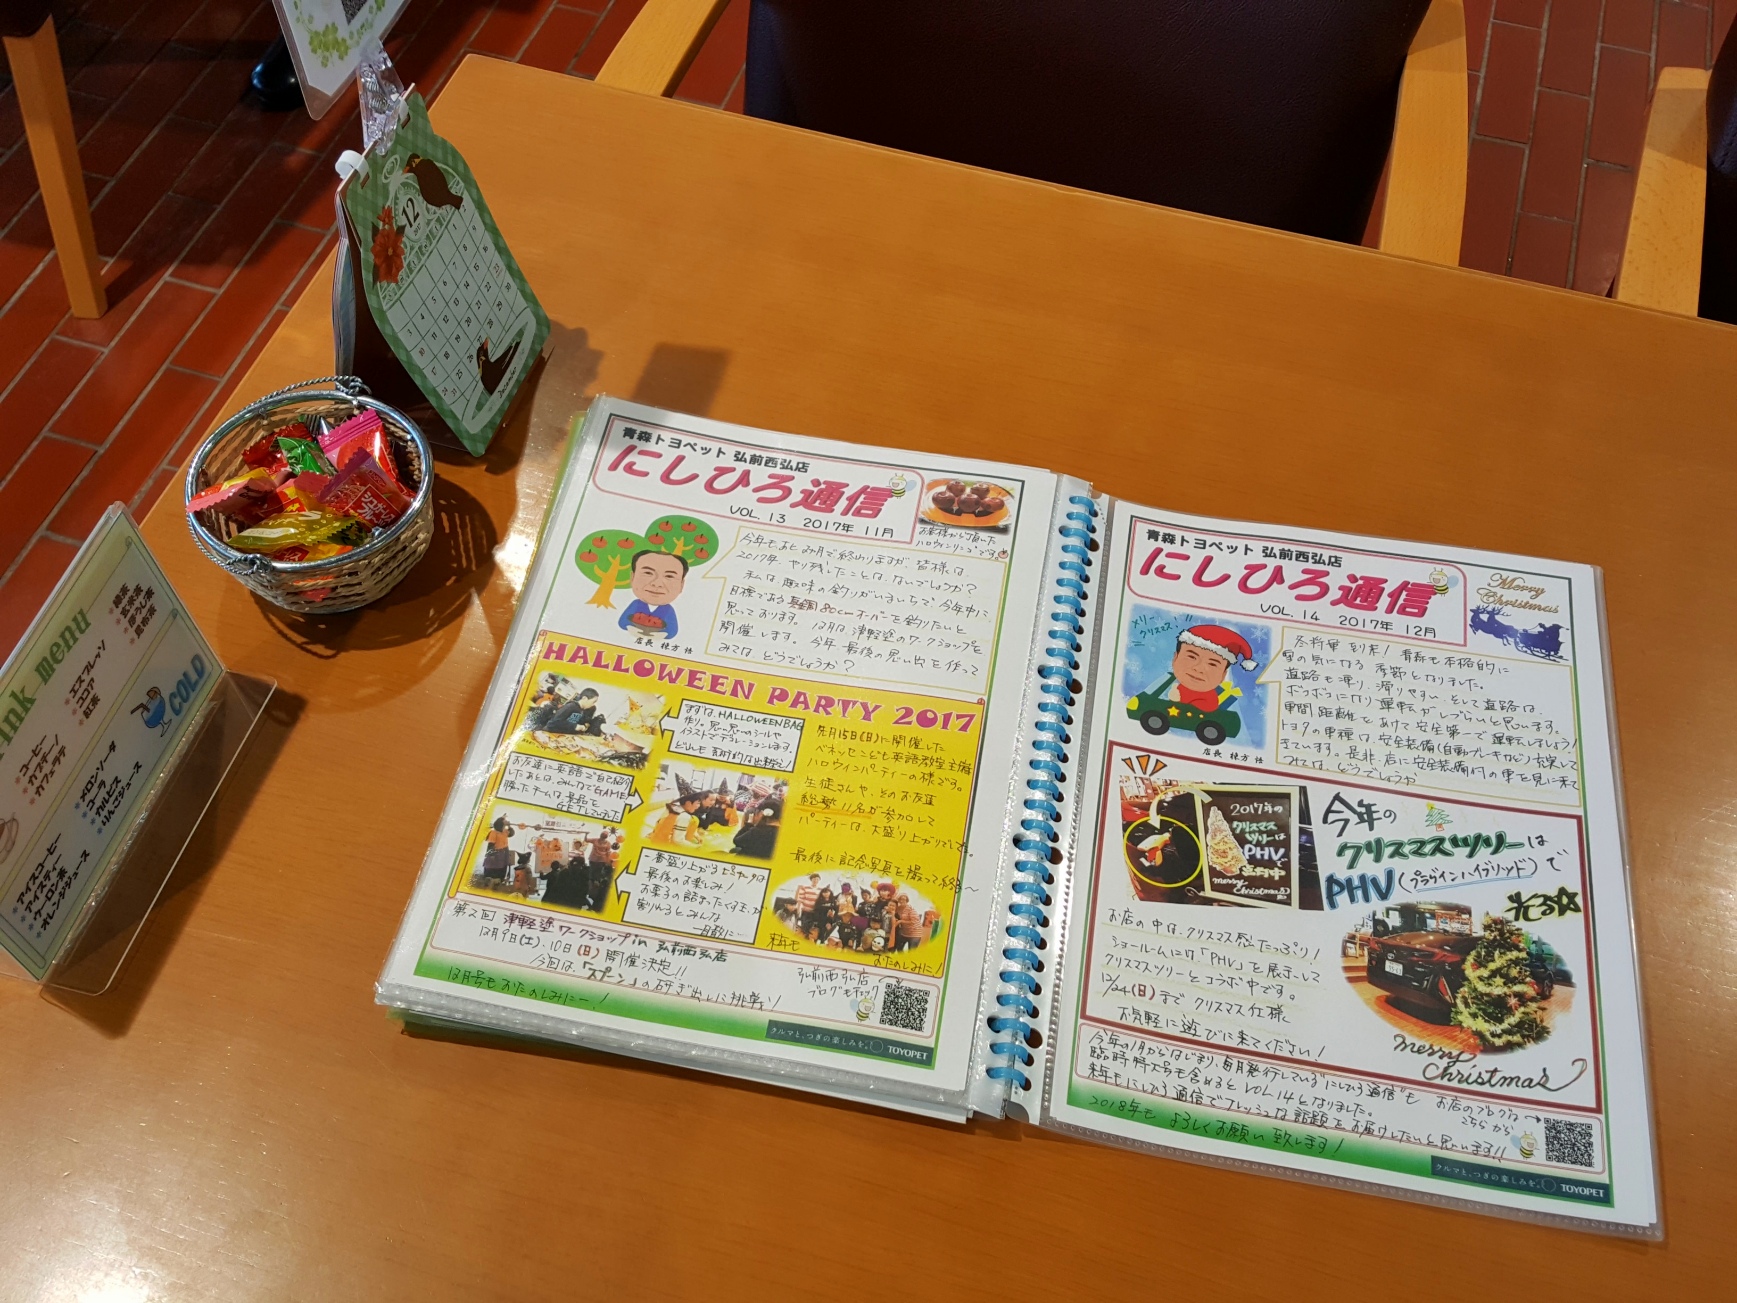 12
December
ink menu
エスプレッソ
ココア
紅茶
コーヒー
カプチーノ
カフェラテ
COLD
メロンソーダ
コーラ
カルピス
りんごジュース
アイスコーヒー
アイスティー
ウーロン茶
オレンジジュース
青森トヨペット 弘前西弘店
にしひろ通信
VOL. 13 2017年 11月
お客様から頂いた
ハロウィンリンゴです。
今年もあと2ヵ月で終わりますが、皆様は、
2017年、ヤリ残したことは、ないでしょうか?
私は趣味の釣りがいまいちで今年中に
目標である真鯛80cmオーバーを釣りたいと
思っております。12月は、津軽塗のワークショップを
開催します。今年最後の思い出を作って
みては どうでしょうか?
店長
HALLOWEEN PARTY 2017
まずは、HALLOWEEN BAG
作り。思い思いのシールや
イラストでデコレーションします。
どれも 素敵な出来栄え!
先月15日(日)に開催した
ベネッセこども英語教室主催
ハロウィンパーティーの様子。
生徒さんや、そのお友達
総勢11名が参加して
パーティーは、大盛り上がりでした。
お友達に英語で自己紹介
したあとは、みんなでGAME
勝ったチームは景品を
GETしていました
一番盛り上がるピニャータは
最後のお楽しみ!
お菓子の詰まったくす玉が
割れるとみんな
一目散に…
最後に記念写真を撮って終了〜
来年も
おたのしみに!
第2回 津軽塗 ワークショップ in 弘前西弘店
12月9日(土)、10日(日)開催決定!!
今回は、「スプーン」の研ぎ出しに挑戦!
12月号もおたのしみにー!
弘前西弘店
ブログもチェック
クルマと、つぎの楽しみを。 TOYOPET
青森トヨペット 弘前西弘店
にしひろ通信
VOL. 14 2017年 12月
Merry
Christmas
メリー
クリスマス!!
冬将軍 到来! 青森も本格的に
雪の気になる 季節となりました。
道路も凍り、滑りやすい、そして道路は、
ボコボコになり運転がしづらいと思います。
車間距離をあけて安全第一で運転しましょう!
トヨタの車種は、安全装備(自動ブレーキなど)も充実して
きています。是非、店に安全装備付の車を見に来て
みては、どうでしょうか
店長
2017年の
クリスマス
ツリーは
PHV
Merry
Christmas
今年の
クリスマスツリーは
PHV(プラグインハイブリッド)で
光る☆
お店の中は、クリスマス感たっぷり!
ショールームには「PHV」を展示して
クリスマスツリーとコラボ中です。
12/24(日)まで クリスマス仕様
お気軽に遊びに来てください!
Merry
Christmas
今年の1月からはじまり、毎月発行している"にしひろ通信"も
臨時特大号も含めるとVOL.14となりました。
来年もにしひろ通信でフレッシュな話題をお届けしたいと思います!!
2018年も よろしくお願い致します!
お店のブログは→
こちらから
クルマと、つぎの楽しみを。 TOYOPET